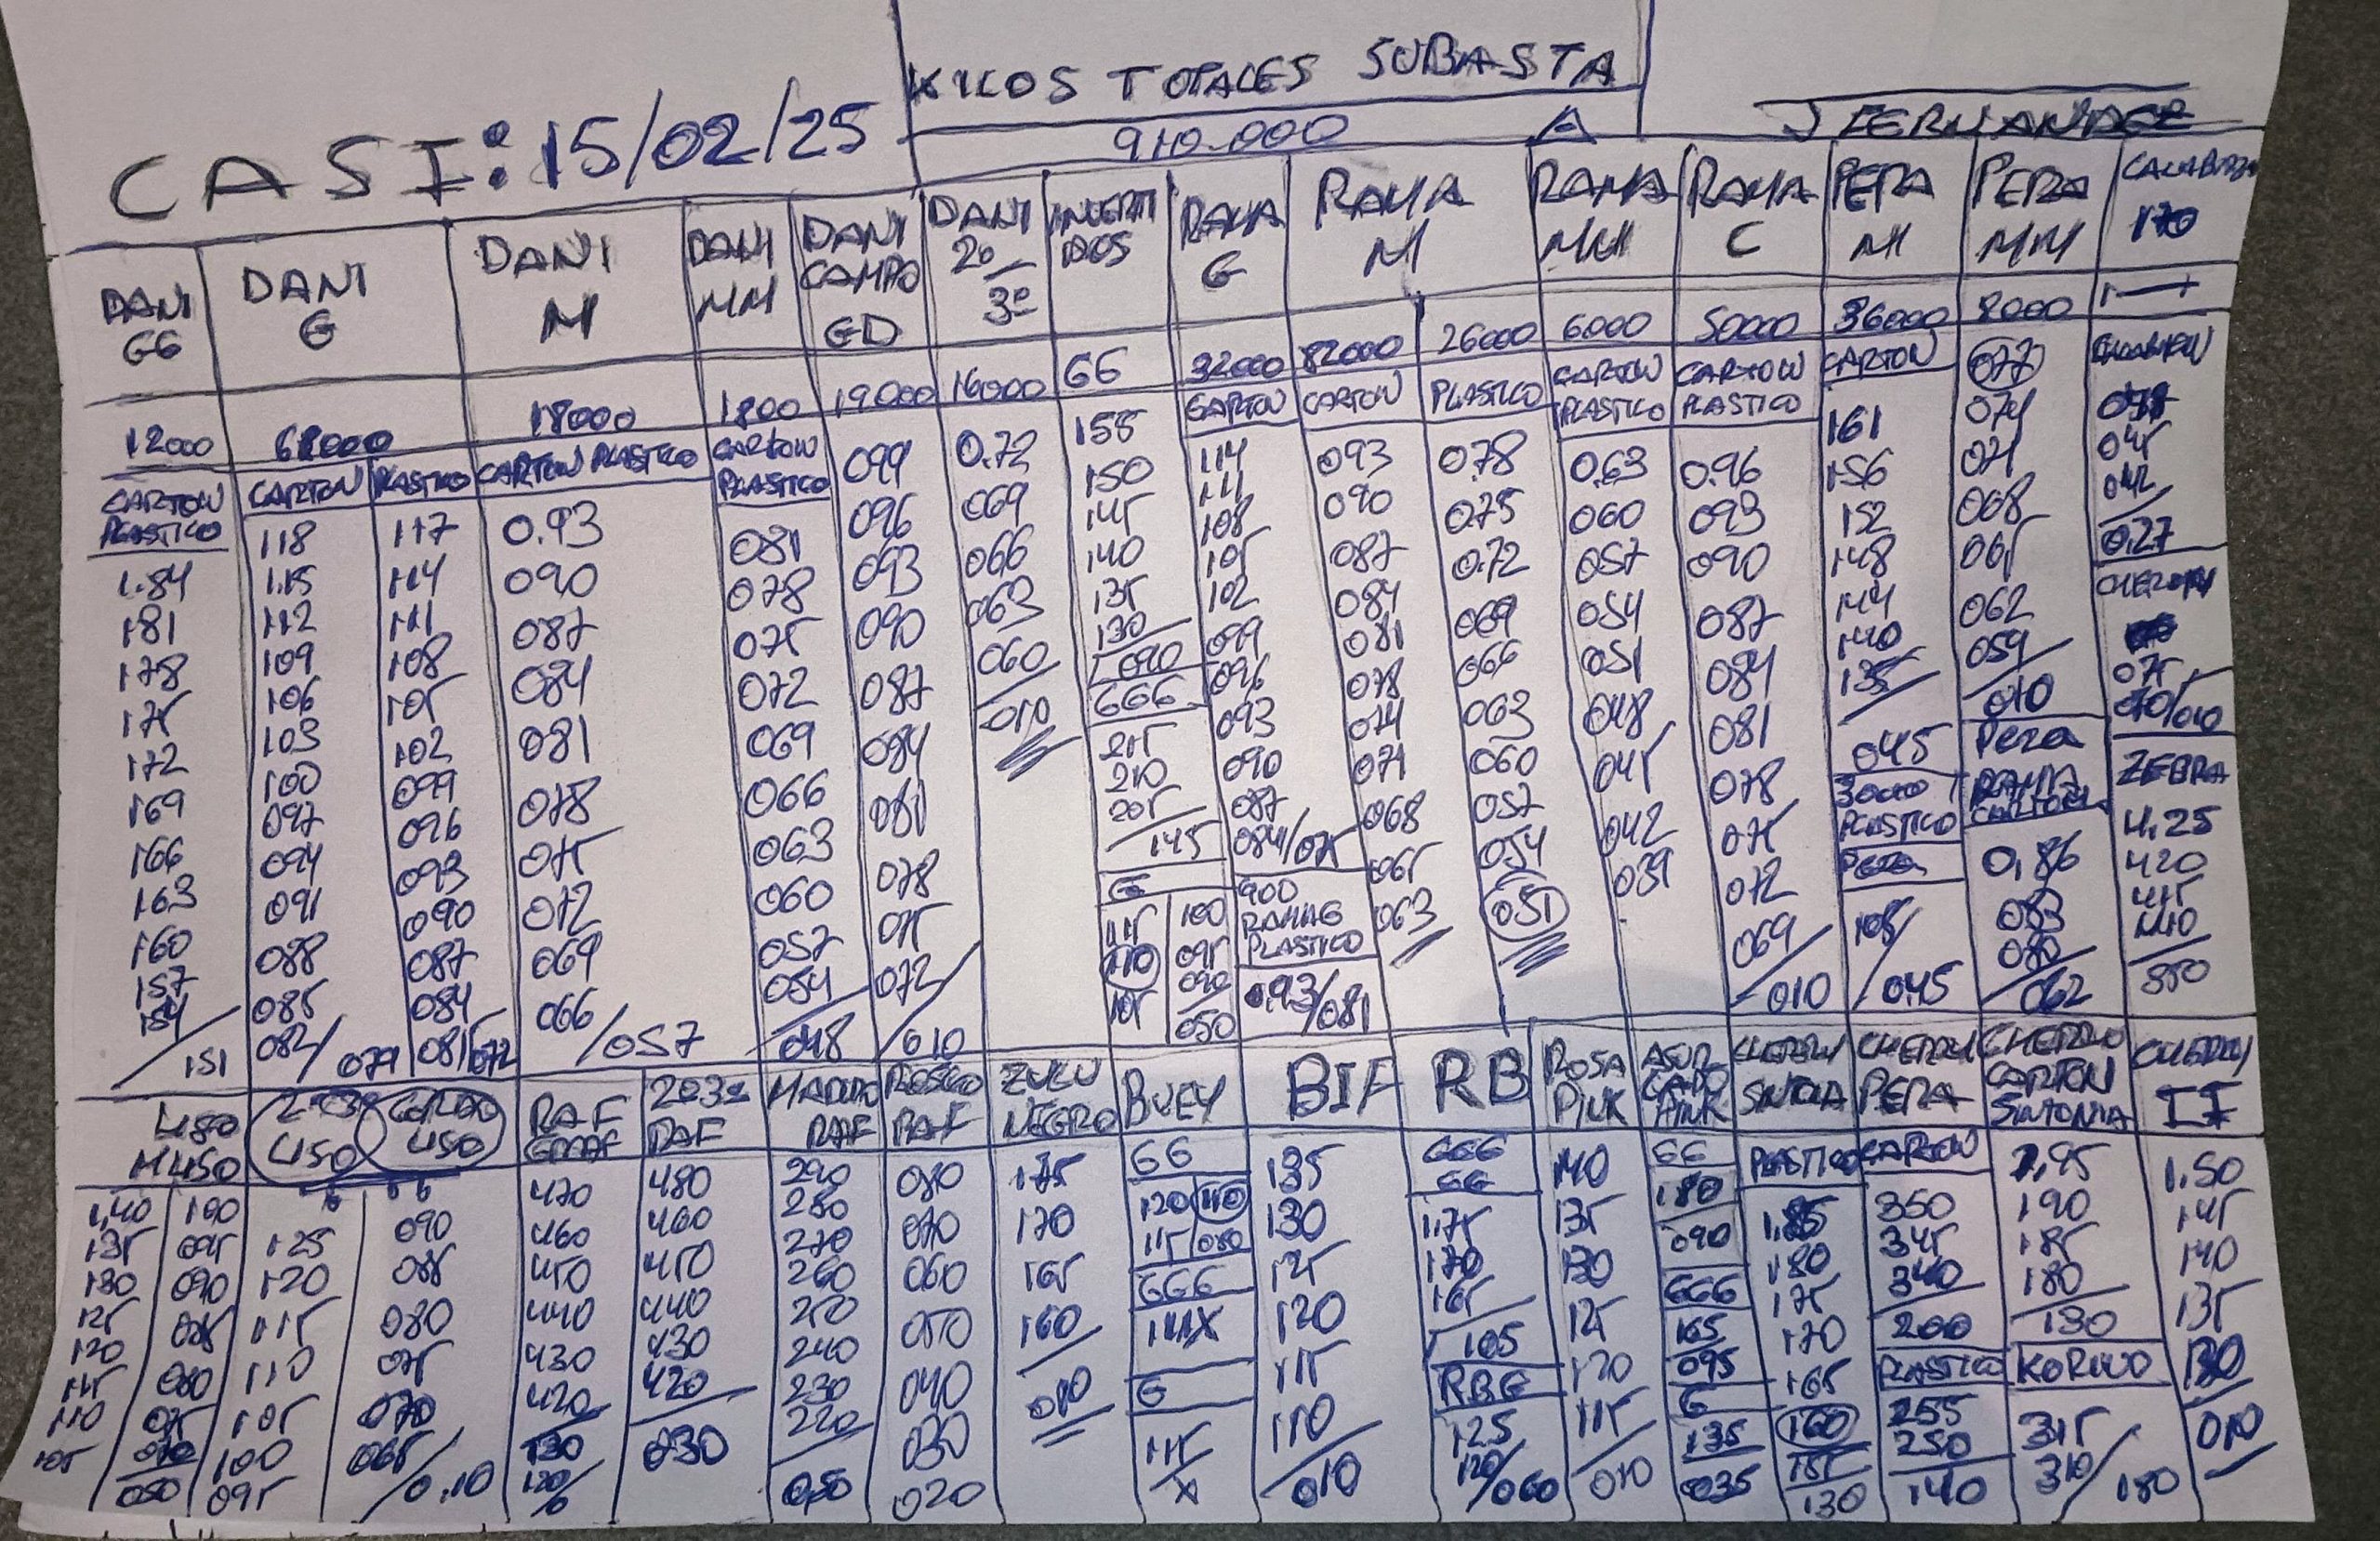 KILOS TOTALES SUBASTA
CASI: 15/02/25
910.000
A
J FERNANDEZ
DANI GG
DANI G
DANI M
DANI MM
DANI CAMPO GD
DANI 2º 3º
INVERTIDOS
RAMA G
RAMA M
RAMA MM
RAMA C
PERA M
PERA MM
CALABAZA
170
12000
68000
18000
1800
19000
16000
GG
32000
82000
26000
6000
50000
36000
8000
CARTON PLASTICO
1.84
181
178
175
172
169
166
163
160
157
154
151
CARTON
118
1.15
112
109
106
103
100
097
094
091
088
085
082/
079
PLASTICO
117
114
111
108
105
102
099
096
093
090
087
084
081/072
CARTON PLASTICO
0.93
090
087
084
081
078
075
072
069
066
/057
CARTON PLASTICO
081
078
075
072
069
066
063
060
057
054
048
099
096
093
090
087
084
081
078
075
072
010
0.72
069
066
063
060
010
155
150
145
140
135
130
090
GGG
215
210
205
145
G
115
110
105
100
095
090
050
CARTON
114
111
108
105
102
099
096
093
090
087
084/075
900
RAMA G
PLASTICO
0.93/081
CARTON
093
090
087
084
081
078
074
071
068
065
063
PLASTICO
0.78
0.75
0.72
069
066
063
060
057
054
051
CARTON PLASTICO
0.63
060
057
054
051
048
045
042
039
CARTON PLASTICO
0.96
093
090
087
084
081
078
075
072
069
010
CARTON
161
156
152
148
144
140
135
045
PLASTICO
PERA
105
/045
077
074
071
068
065
062
059
010
PERA
RAMA
0,86
083
080
062
045
042
0.27
075
070/010
ZEBRA
4.25
420
415
410
350
480
M450
1,40
135
130
125
120
115
110
105
100
095
090
085
080
075
070
050
2º3º
450
125
120
115
110
105
100
095
GORDO
450
090
085
080
075
070
065
0.10
RAF
470
460
450
440
430
420
130
120/
2º3º
RAF
480
460
450
440
430
420
030
MADURO
RAF
290
280
270
260
250
240
230
220
050
ROSCO
RAF
080
070
060
050
040
030
020
ZULU
NEGRO
175
170
165
160
010
BUEY
GG
120
110
115
080
GGG
G
115
X
BIF
135
130
125
120
115
110
010
RB
GGG
GG
1.75
170
165
105
RBG
125
120/
060
ROSA
PINK
140
135
130
125
120
115
010
PINK
GG
180
090
GGG
165
095
G
135
035
CHERRY
PLASTICO
1.85
180
175
170
165
160
155
130
CHERRY
PERA
CARTON
350
345
340
200
PLASTICO
255
250
140
CHERRY
CARTON
SINTONIA
1,95
190
185
180
130
315
310
180
CHERRY
II
1.50
145
140
135
130
010